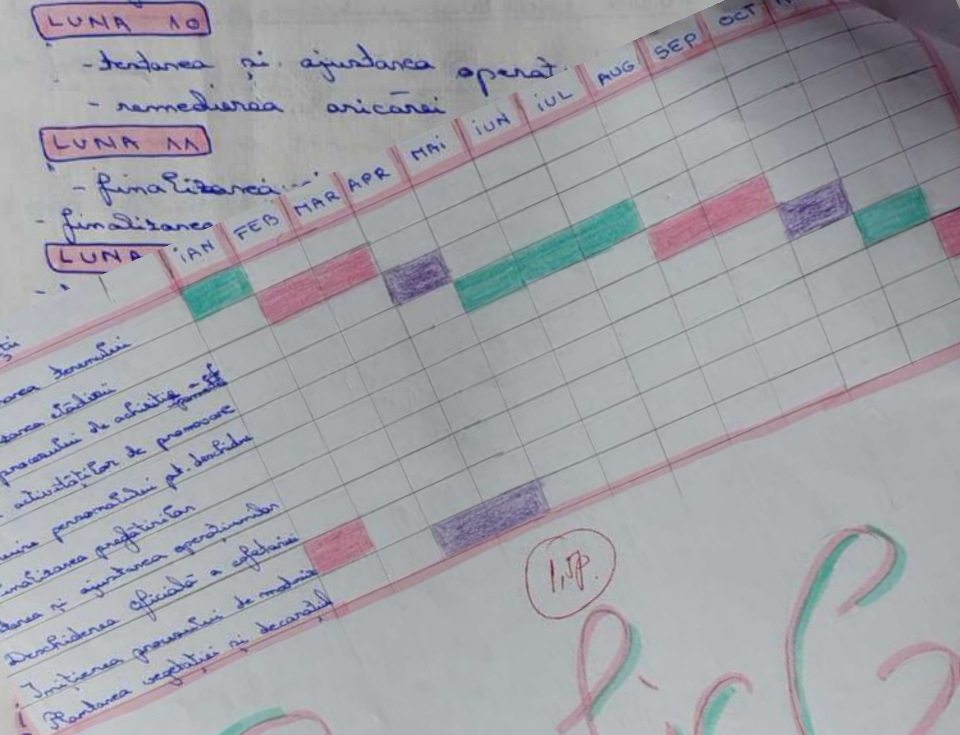 LUNA 10
- testarea și ajustarea operat
- remedierea oricărei
LUNA 11
- finalizarea
- finalizarea
LUNA
IAN FEB MAR APR MAI IUN IUL AUG SEP OCT
terenului
clădirii
procesului de achiziție
activităților de promovare
personalului pt. deschidere
finalizarea pregătirilor
și ajustarea operațiunilor
Deschiderea oficială a cofetăriei
Inițierea procesului de
Plantarea vegetației și decorațiil
1,5p.